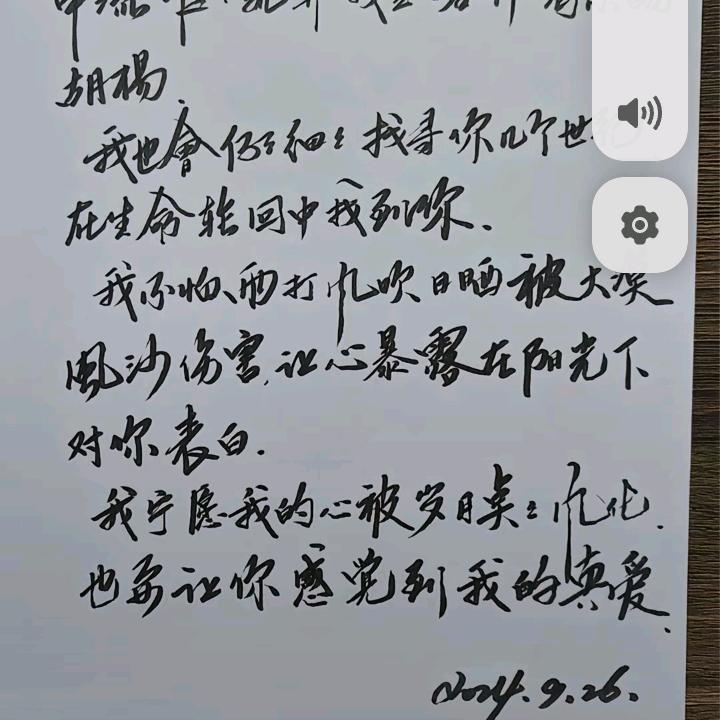 胡楊.
我也會仔々细々找寻你几个世
在生命轮回中找到你.
我不怕、雨打风吹日晒被大漠
風沙伤害,让心暴露在阳光下
对你表白.
我宁愿我的心被岁月奌々风化.
也要让你感觉到我的真爱.
2024.9.26.